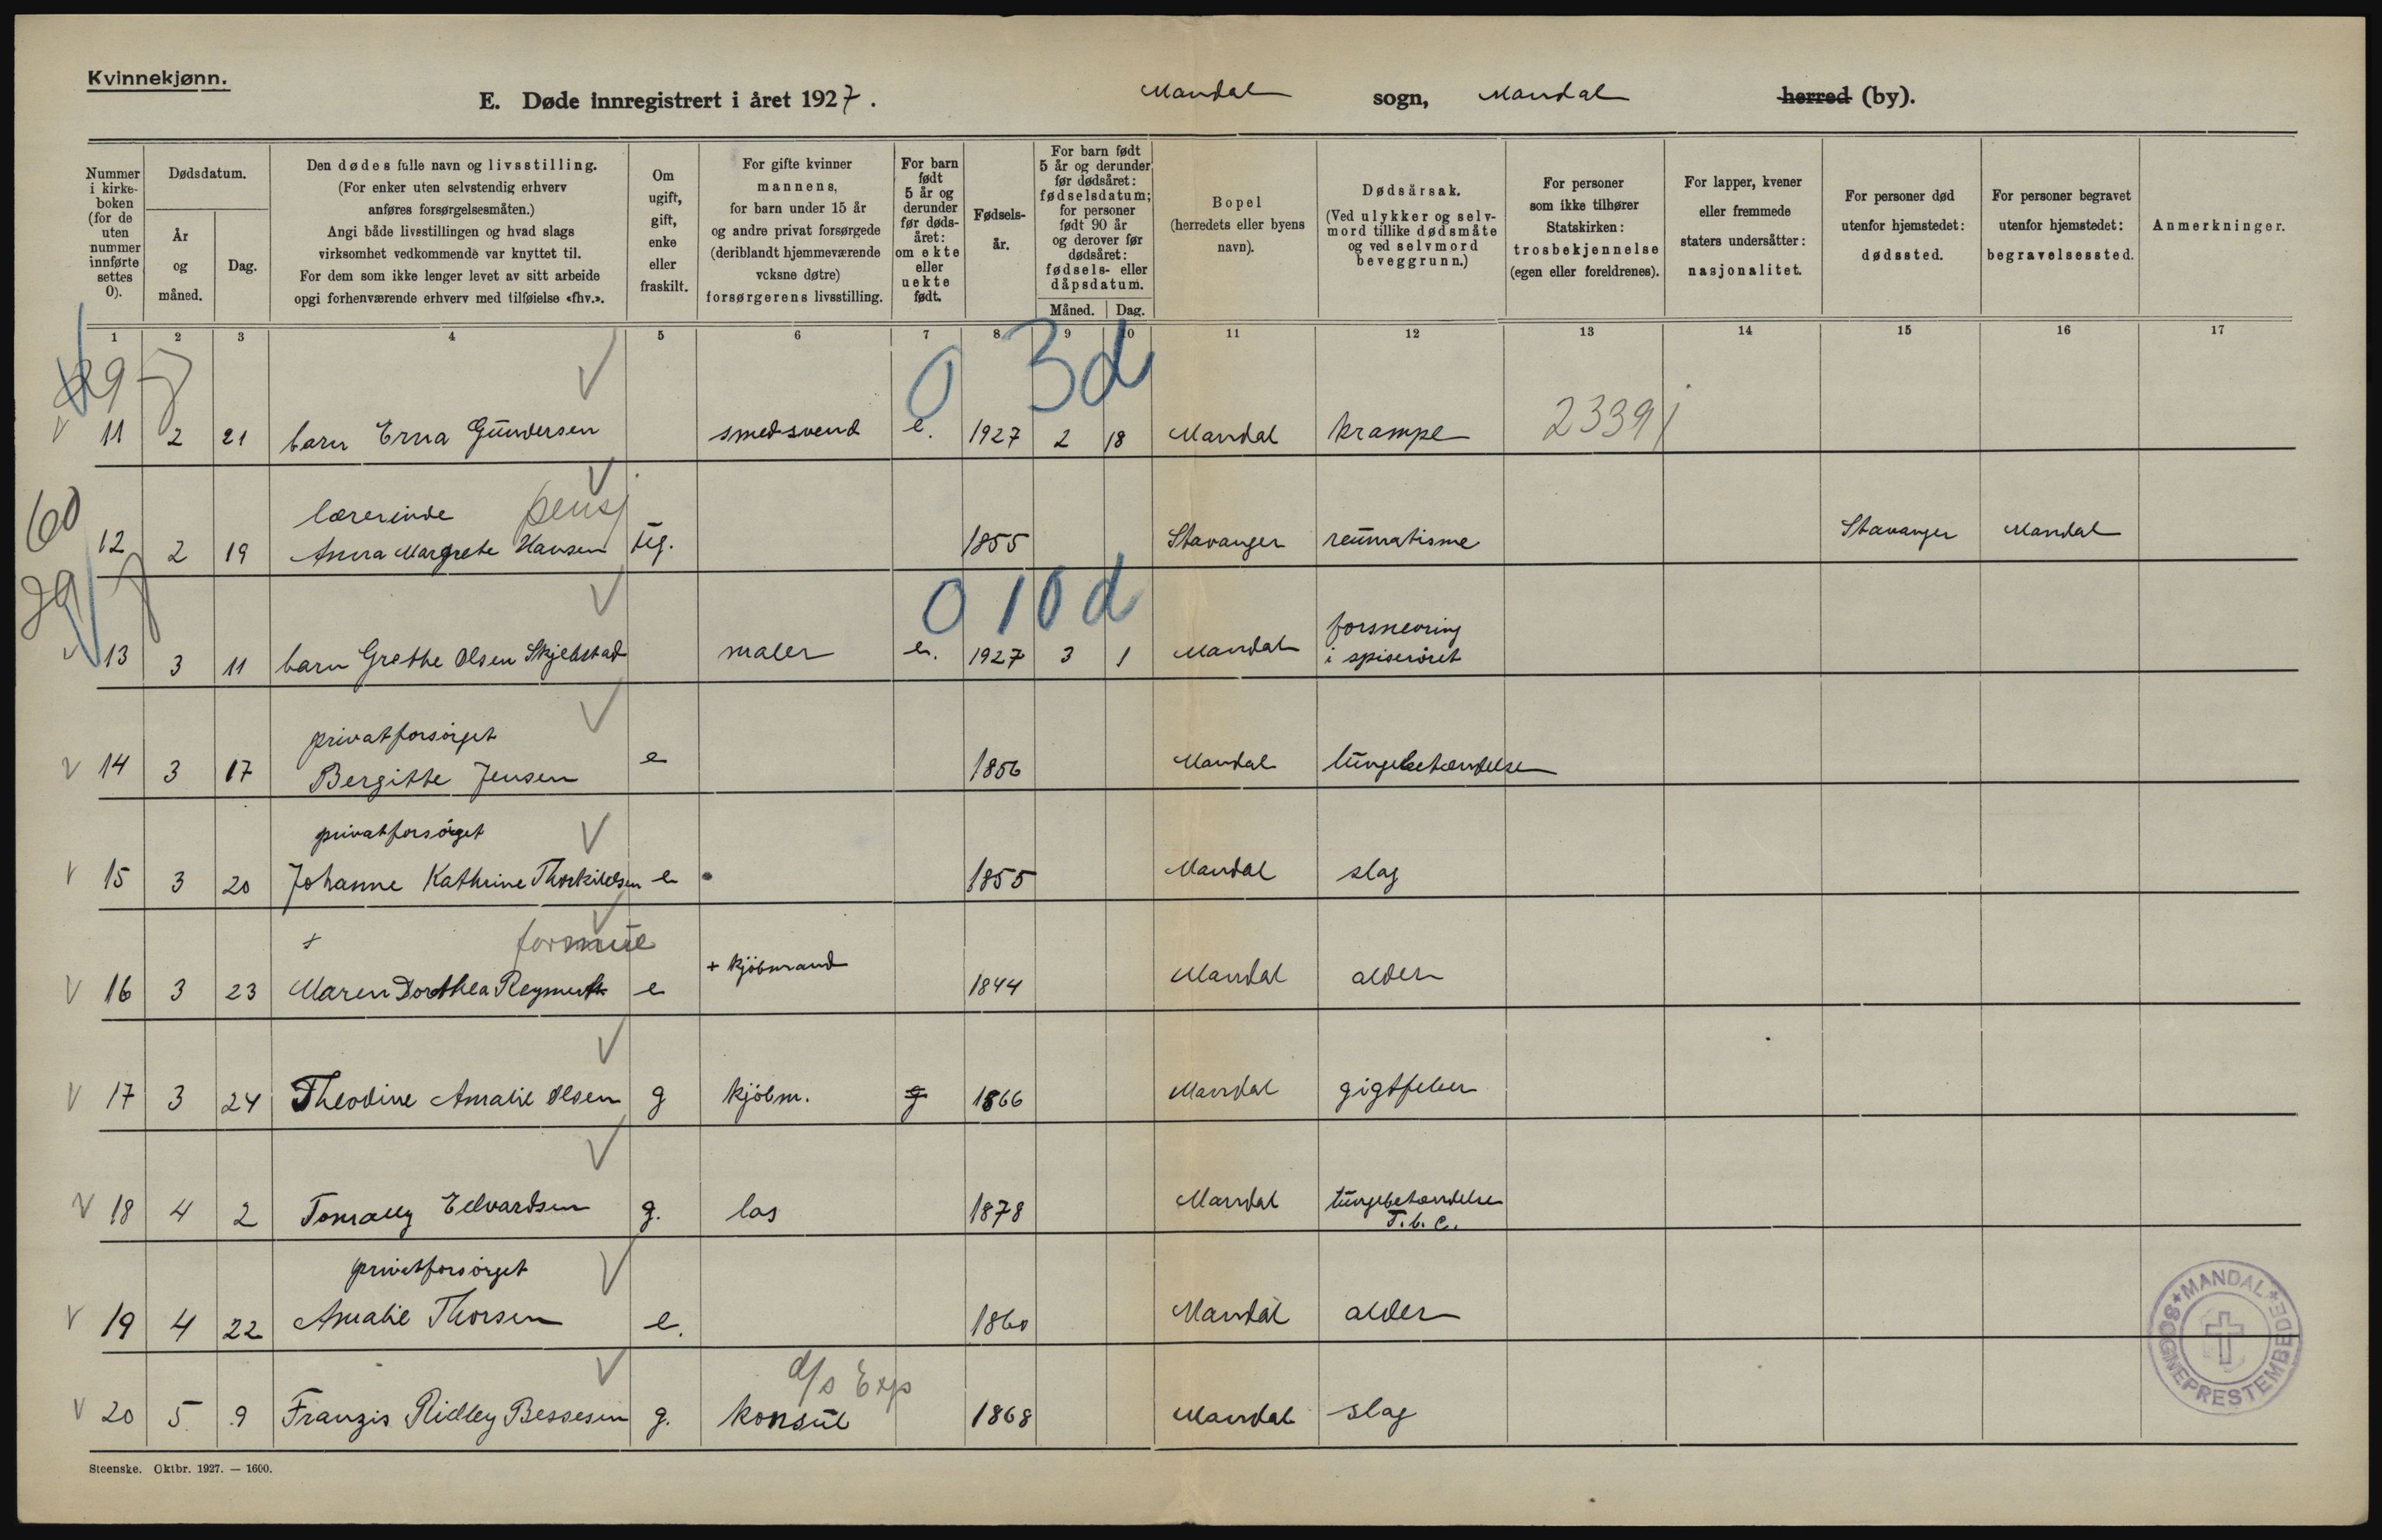 Kvinnekjønn.
E. Døde innregistrert i året 1927. Mandal sogn, Mandal herred (by).
Nummer i kirkeboken (for de uten nummer innførte settes 0).
Dødsdatum.
År og måned.
Dag.
Den dødes fulle navn og livsstilling.
(For enker uten selvstendig erhverv
anføres forsørgelsesmåten.)
Angi både livesstillingen og hvad slags
virksomhet vedkommende var knyttet til.
For dem som ikke lenger levet av sitt arbeide
opgi forhenværende erhverv med tilføielse «fhv.».
Om ugift, gift, enke eller fraskilt.
For gifte kvinner
mannens,
for barn under 15 år
og andre privat forsørgede
(deriblandt hjemmeværende
voksne døtre)
forsørgerens livsstilling.
For barn født 5 år og derunder før dødsåret: om ekte eller uekte født.
Fødselsår.
For barn født
5 år og derunder
før dødsåret:
fødselsdatum;
for personer
født 90 år
og derover før
dødsåret:
fødsels- eller
dåpsdatum.
Måned. Dag.
Bopel
(herredets eller byens
navn).
Dødsårsak.
(Ved ulykker og selvmord tillike dødsmåte
og ved selvmord
beveggrunn.)
For personer
som ikke tilhører
Statskirken:
trosbekjennelse
(egen eller foreldrenes).
For lapper, kvener
eller fremmede
staters undersåtter:
nasjonalitet.
For personer død
utenfor hjemstedet:
dødssted.
For personer begravet
utenfor hjemstedet:
begravelsessted.
Anmerkninger.
1 2 3 4 5 6 7 8 9 10 11 12 13 14 15 16 17
297 0 3d
11 2 21 barn Erna Gundersen smedsvend e. 1927 2 18 Mandal krampe 2339
60 lærerinde pensj
12 2 19 Anna Margrete Hansen ug. 1855 Stavanger reumatisme Stavanger Mandal
297 0 10 d
13 3 11 barn Grethe Olsen Skjebstad maler e. 1927 3 1 Mandal forsnevring
i spiserøret
privatforsørget
14 3 17 Bergitte Jensen e 1856 Mandal lungebetændelse
privatforsørget
15 3 20 Johanne Kathrine Thorkildsen e 1855 Mandal slag
+ formue
16 3 23 Maren Dorothea Reymert e + kjøbmand 1844 Mandal alder
17 3 24 Theodine Amalie Olsen g kjøbm. g 1866 Mandal gigtfeber
18 4 2 Tomally Edvardsen g. los 1878 Mandal lungebetændelse
T.b.c.
privatforsørget
19 4 22 Amalie Thorsen e. 1860 Mandal alder
d/s Exp
20 5 9 Franzis Ridley Bessesen g. konsul 1868 Mandal slag
MANDAL SOGNEPRESTEMBEDE
Steenske. Oktbr. 1927. — 1600.